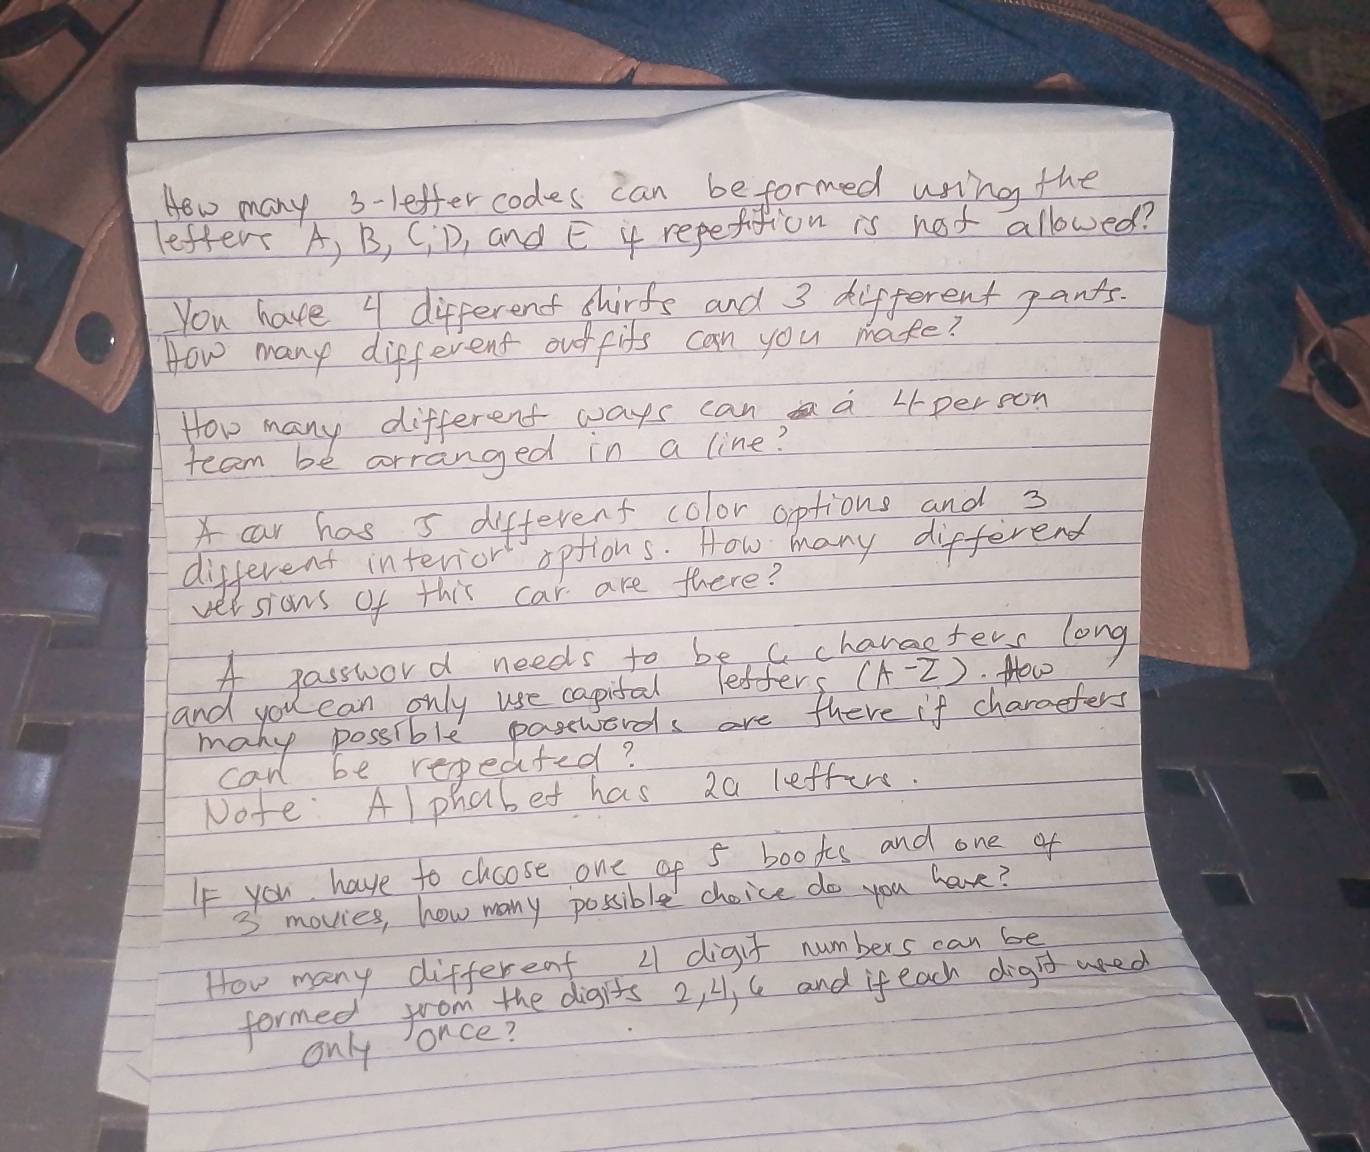 How many 3-letter codes can be formed using the
letters A, B, C, D, and E if repetition is not allowed?
You have 4 different shirts and 3 different pants.
How many different outfits can you make?
How many different ways can a 4 person
team be arranged in a line?
A car has 5 different color options and 3
different interior options. How many different
versions of this car are there?
A password needs to be 6 characters long
and you can only use capital letters (A-Z). How
many possible passwords are there if characters
can be repeated?
Note: Alphabet has letters.
IF you have to choose one of 5 books and one of
3 movies, how many possible choice do you have?
How many different 4 digit numbers can be
formed from the digits 2, 4, 6 and if each digit used
only once?